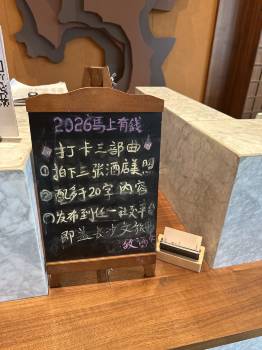 2026馬上有錢
打卡三部曲
①拍下三张酒店美照
②配多于20字内容
③发布到任一社交平
即送长沙文创